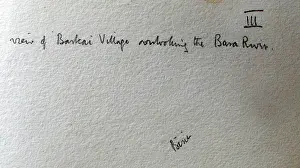 III
view of Barkai Village overlooking the Bara River.
Bara